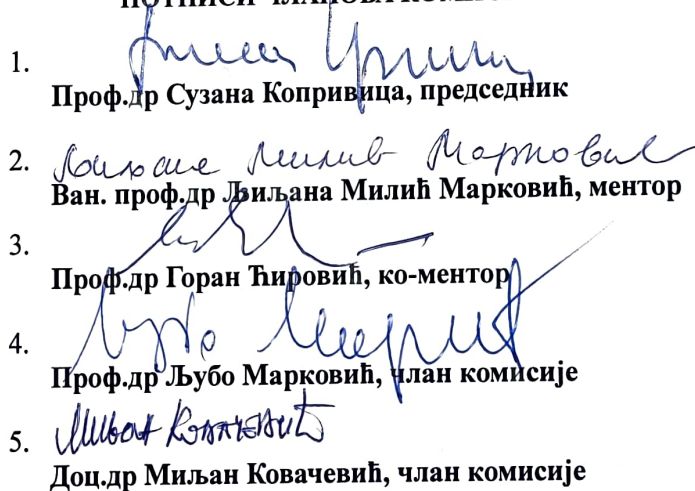 ПОТПИСИ ЧЛАНОВА
1.
Проф.др Сузана Копривица, председник
2. Љиљана Милић Марковић
Ван. проф.др Љиљана Милић Марковић, ментор
3.
Проф.др Горан Ћировић, ко-ментор
4.
Проф.др Љубо Марковић, члан комисије
5. Миљан Ковачевић
Доц.др Миљан Ковачевић, члан комисије